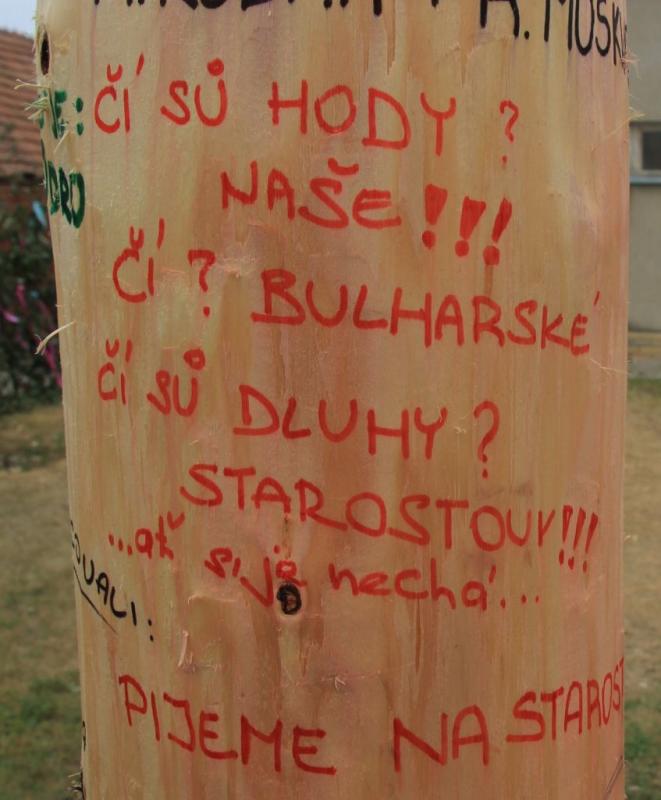 A. MUSK
ČÍ SŮ HODY ?
NAŠE !!!
ČÍ ? BULHARSKÉ
ČÍ SŮ DLUHY ?
STAROSTOVY!!!
...ať si je nechá...
PIJEME NA STAROST